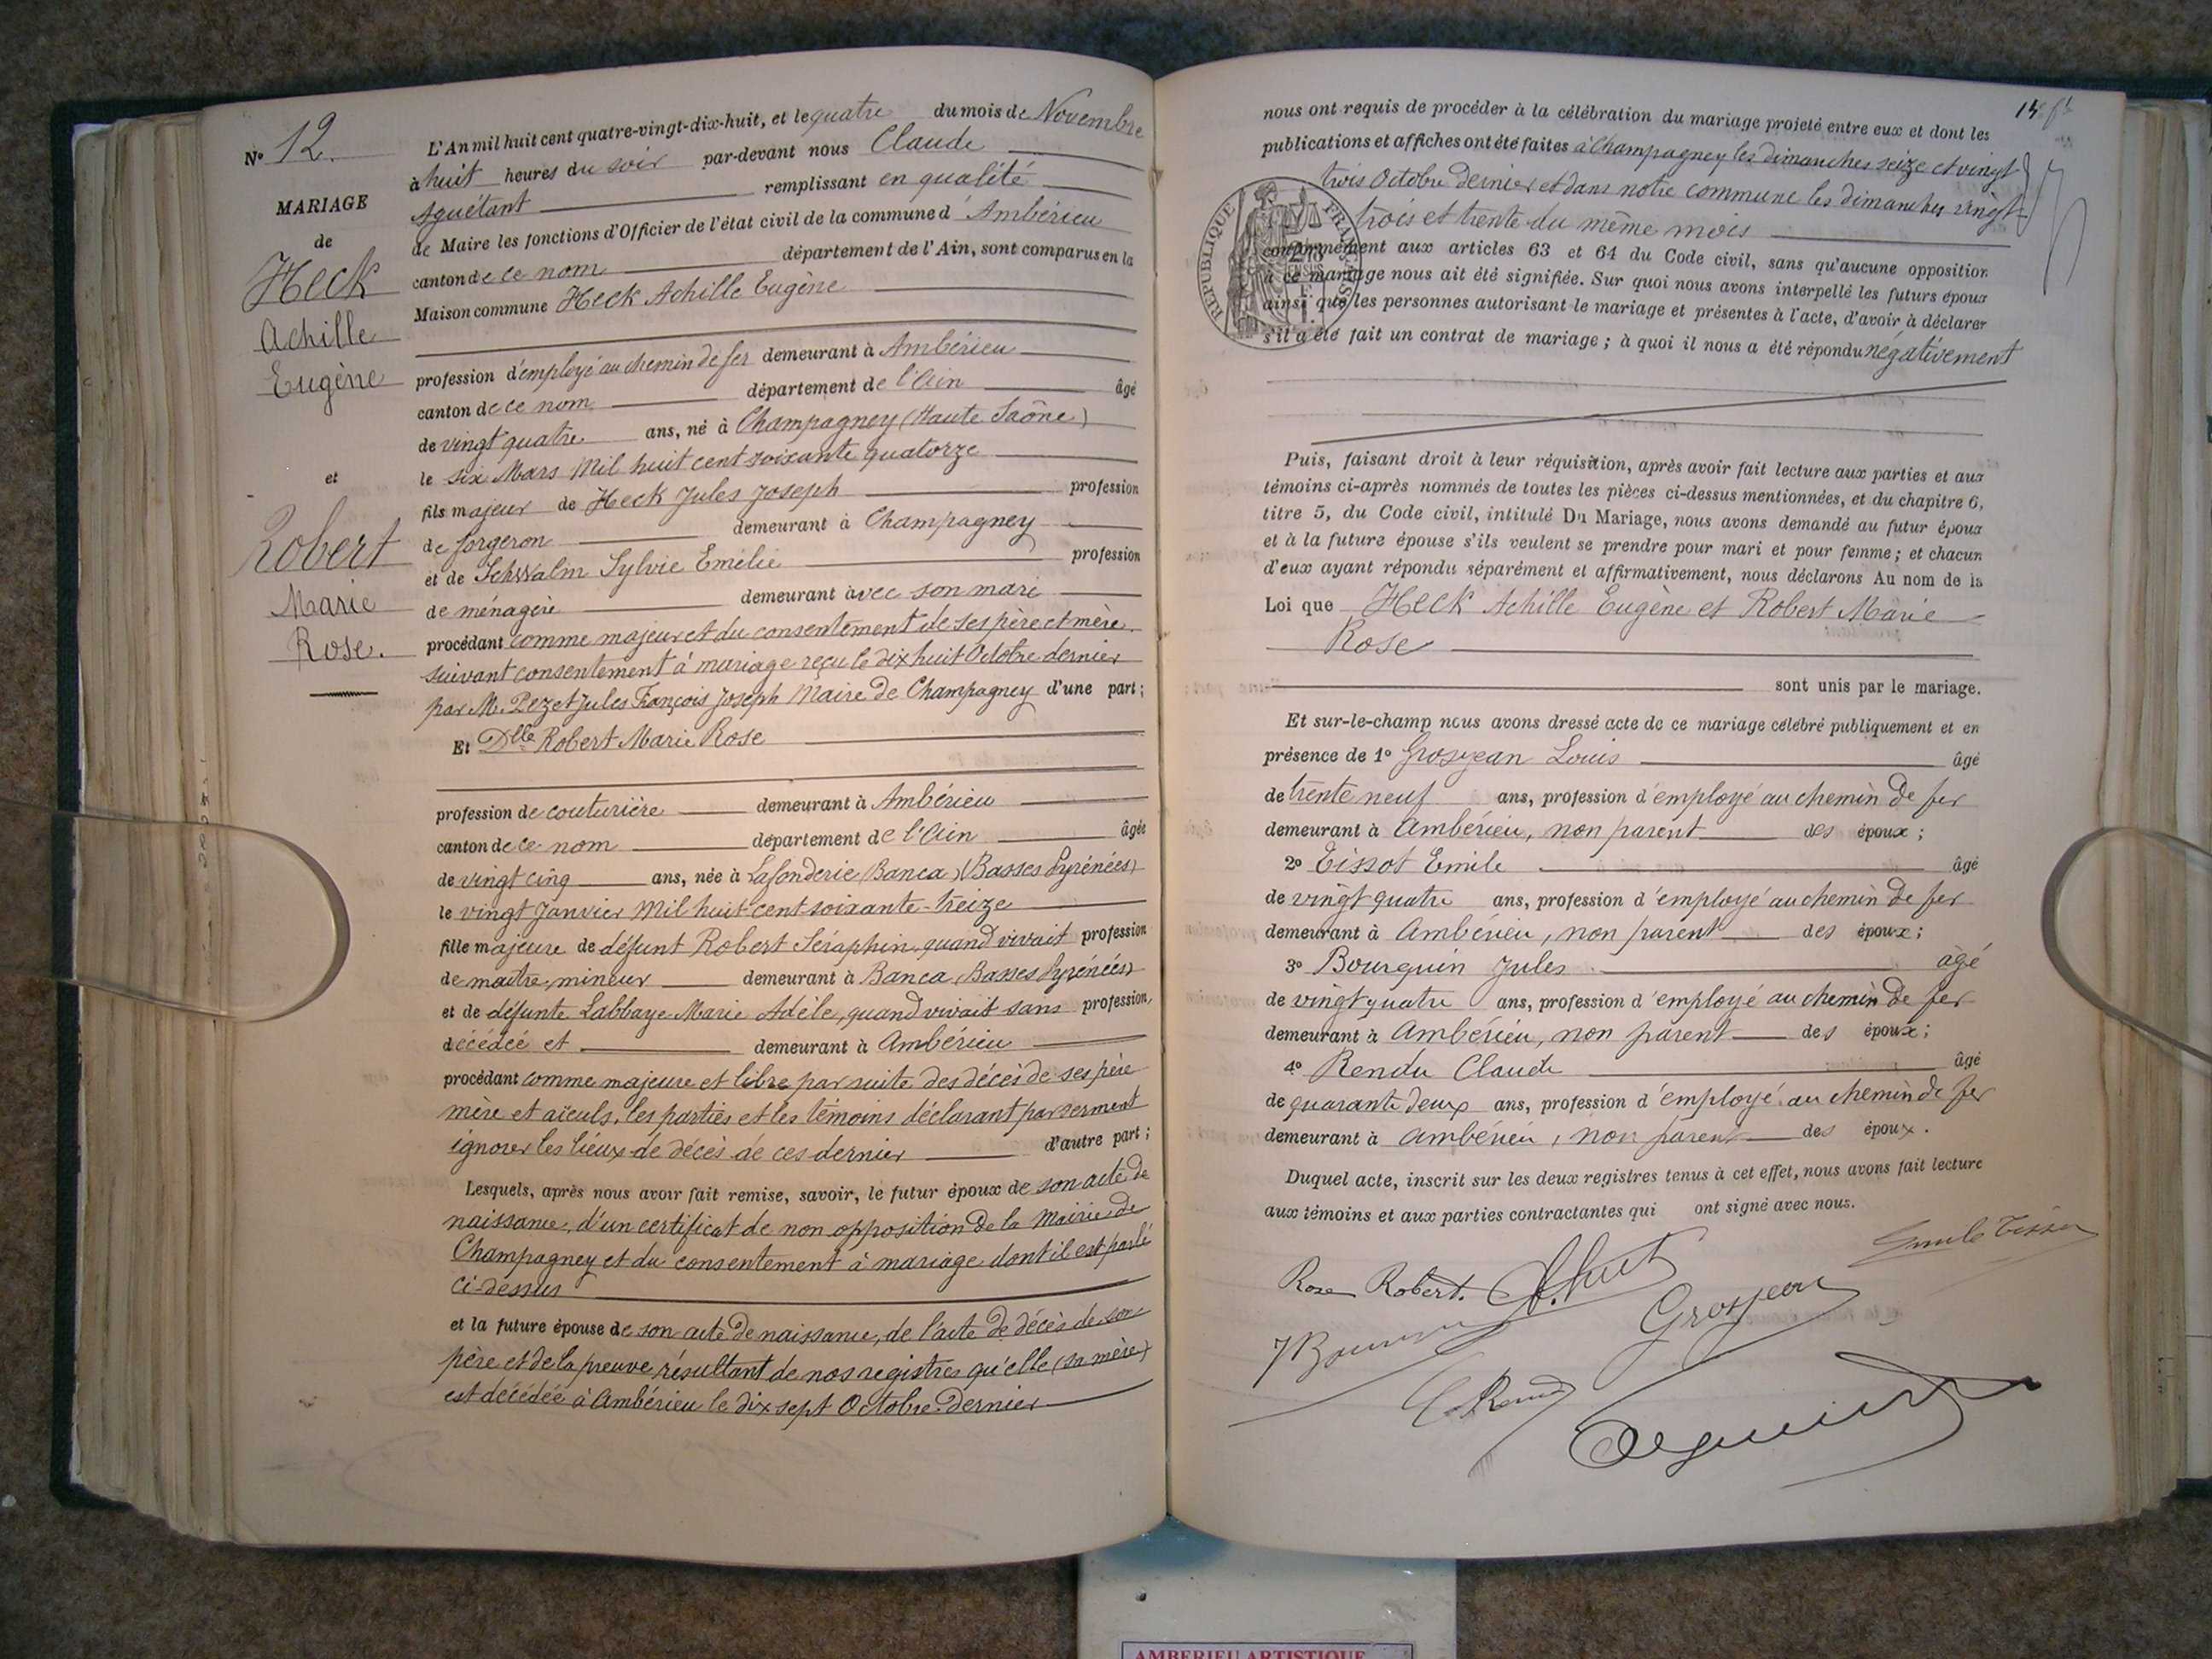 Nº 12.
MARIAGE
de
Heck
Achille
Eugène
et
Robert
Marie
Rose.
L'An mil huit cent quatre-vingt-dix-huit, et le quatre du mois de Novembre
à huit heures du soir par-devant nous Claude
Aguétant remplissant en qualité
de Maire les fonctions d'Officier de l'état civil de la commune d'Ambérieu
canton de ce nom département de l'Ain, sont comparus en la
Maison commune Heck Achille Eugène
profession d'employé au chemin de fer demeurant à Ambérieu
canton de ce nom département de l'Ain âgé
de vingt quatre ans, né à Champagney (Haute Saône)
le six Mars Mil huit cent soixante quatorze
fils majeur de Heck Jules Joseph profession
de forgeron demeurant à Champagney
et de Schwalm Sylvie Emélie profession
de ménagère demeurant avec son mari
procédant comme majeur et du consentement de ses père et mère
suivant consentement à mariage reçu le dix huit Octobre dernier
par M. Pezet Jules François Joseph Maire de Champagney d'une part;
Et Dlle Robert Marie Rose
profession de couturière demeurant à Ambérieu
canton de ce nom département de l'Ain âgée
de vingt cinq ans, née à Lafonderie (Banca) (Basses Pyrénées)
le vingt Janvier Mil huit cent soixante-treize
fille majeure de défunt Robert Séraphin, quand vivait profession
de maitre-mineur demeurant à Banca (Basses Pyrénées)
et de défunte Labbaye Marie Adèle, quand vivait sans profession,
décédée et demeurant à Ambérieu
procédant comme majeure et libre par suite des décès de ses père
mère et aïeuls, les parties et les témoins déclarant par serment
ignorer les lieux de décès de ces dernier d'autre part;
Lesquels, après nous avoir fait remise, savoir, le futur époux de son acte de
naissance, d'un certificat de non opposition de la Mairie de
Champagney et du consentement à mariage dont il est parlé
ci-dessus
et la future épouse de son acte de naissance, de l'acte de décès de son
père et de la preuve résultant de nos registres qu'elle (sa mère)
est décédée à Ambérieu le dix sept Octobre dernier
nous ont requis de procéder à la célébration du mariage projeté entre eux et dont les
publications et affiches ont été faites à Champagney les dimanches seize et vingt
trois Octobre dernier et dans notre commune les dimanches vingt-
trois et trente du même mois
REPUBLIQUE FRANÇAISE
conformément aux articles 63 et 64 du Code civil, sans qu'aucune opposition
à ce mariage nous ait été signifiée. Sur quoi nous avons interpellé les futurs époux
ainsi que les personnes autorisant le mariage et présentes à l'acte, d'avoir à déclarer
s'il a été fait un contrat de mariage; à quoi il nous a été répondu négativement
Puis, faisant droit à leur réquisition, après avoir fait lecture aux parties et aux
témoins ci-après nommés de toutes les pièces ci-dessus mentionnées, et du chapitre 6,
titre 5, du Code civil, intitulé Du Mariage, nous avons demandé au futur époux
et à la future épouse s'ils veulent se prendre pour mari et pour femme; et chacun
d'eux ayant répondu séparément et affirmativement, nous déclarons Au nom de la
Loi que Heck Achille Eugène et Robert Marie
Rose
sont unis par le mariage.
Et sur-le-champ nous avons dressé acte de ce mariage célébré publiquement et en
présence de 1º Grosjean Louis âgé
de trente neuf ans, profession d'employé au chemin de fer
demeurant à Ambérieu, non parent des époux;
2º Tissot Emile âgé
de vingt quatre ans, profession d'employé au chemin de fer
demeurant à Ambérieu, non parent des époux;
3º Bourquin Jules âgé
de vingt quatre ans, profession d'employé au chemin de fer
demeurant à Ambérieu, non parent des époux;
4º Rendu Claude âgé
de quarante deux ans, profession d'employé au chemin de fer
demeurant à Ambérieu, non parent des époux.
Duquel acte, inscrit sur les deux registres tenus à cet effet, nous avons fait lecture
aux témoins et aux parties contractantes qui ont signé avec nous.
Rose Robert.
Grosjean
AMBERIEU ARTISTIQUE